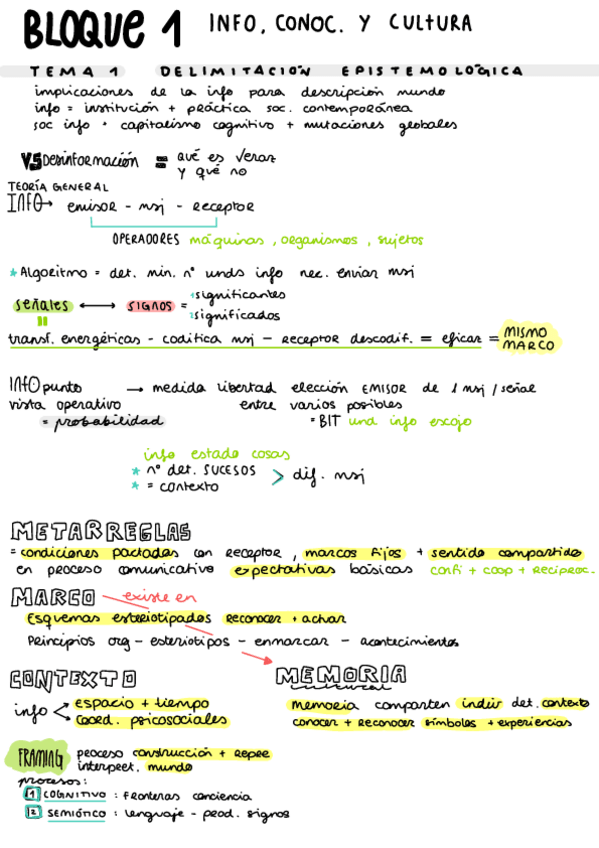 BLOQUE 1 INFO, CONOC. Y CULTURA
TEMA 1 DELIMITACIÓN EPISTEMOLÓGICA
implicaciones de la info para descripción mundo
info = institución + práctica soc. contemporánea
soc info + capitalismo cognitivo + mutaciones globales
VS Desinformación = qué es veraz
y qué no
TEORÍA GENERAL
INFO → emisor - msj - receptor
OPERADORES máquinas, organismos, sujetos
* Algoritmo = det. min. nº unds info nec. enviar msj
señales ⟷ SIGNOS = significantes
significados
=
transf. energéticas - codifica msj - receptor descodif. = eficaz = MISMO
MARCO
INFO punto → medida libertad elección EMISOR de 1 msj / señal
vista operativo entre varios posibles
= probabilidad = BIT una info escojo
info estado cosas
* nº det. SUCESOS > dif. msj
* = contexto
METARREGLAS
= condiciones pactadas con receptor, marcos fijos + sentido compartido
en proceso comunicativo expectativas básicas confi + coop + reciproc.
MARCO existe en
Esquemas esteriotipados reconocer + actuar
Principios org - esteriotipos - enmarcar - acontecimientos
CONTEXTO
info < espacio + tiempo
coord. psicosociales
MEMORIA
cultural
memoria comparten indiv det. contexto
conocer + reconocer símbolos + experiencias
FRAMING proceso construcción + repre
interpret. mundo
procesos:
1 COGNITIVO : fronteras conciencia
2 SEMIÓTICO : lenguaje - prod. signos